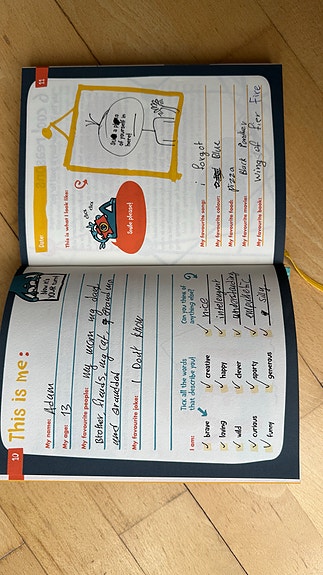 10
This is me:
My name: Adam
My age: 13
My favourite people: my mom my dad
Brother friends my cat grandma
and grandad
My favourite joke: I Don't know
I am:
Tick all the words
that describe you!
Can you think of
anything else?
brave creative nice
loving happy intelegent
wild clever
curious sporty
funny generous silly
11
Date:
This is what I look like:
Smile please!
of yourself in
here!
My favourite song: i forgot
My favourite colour: Blue
My favourite food: pizza
My favourite movie: Black Panther
My favourite book: Wing of Fier Fire